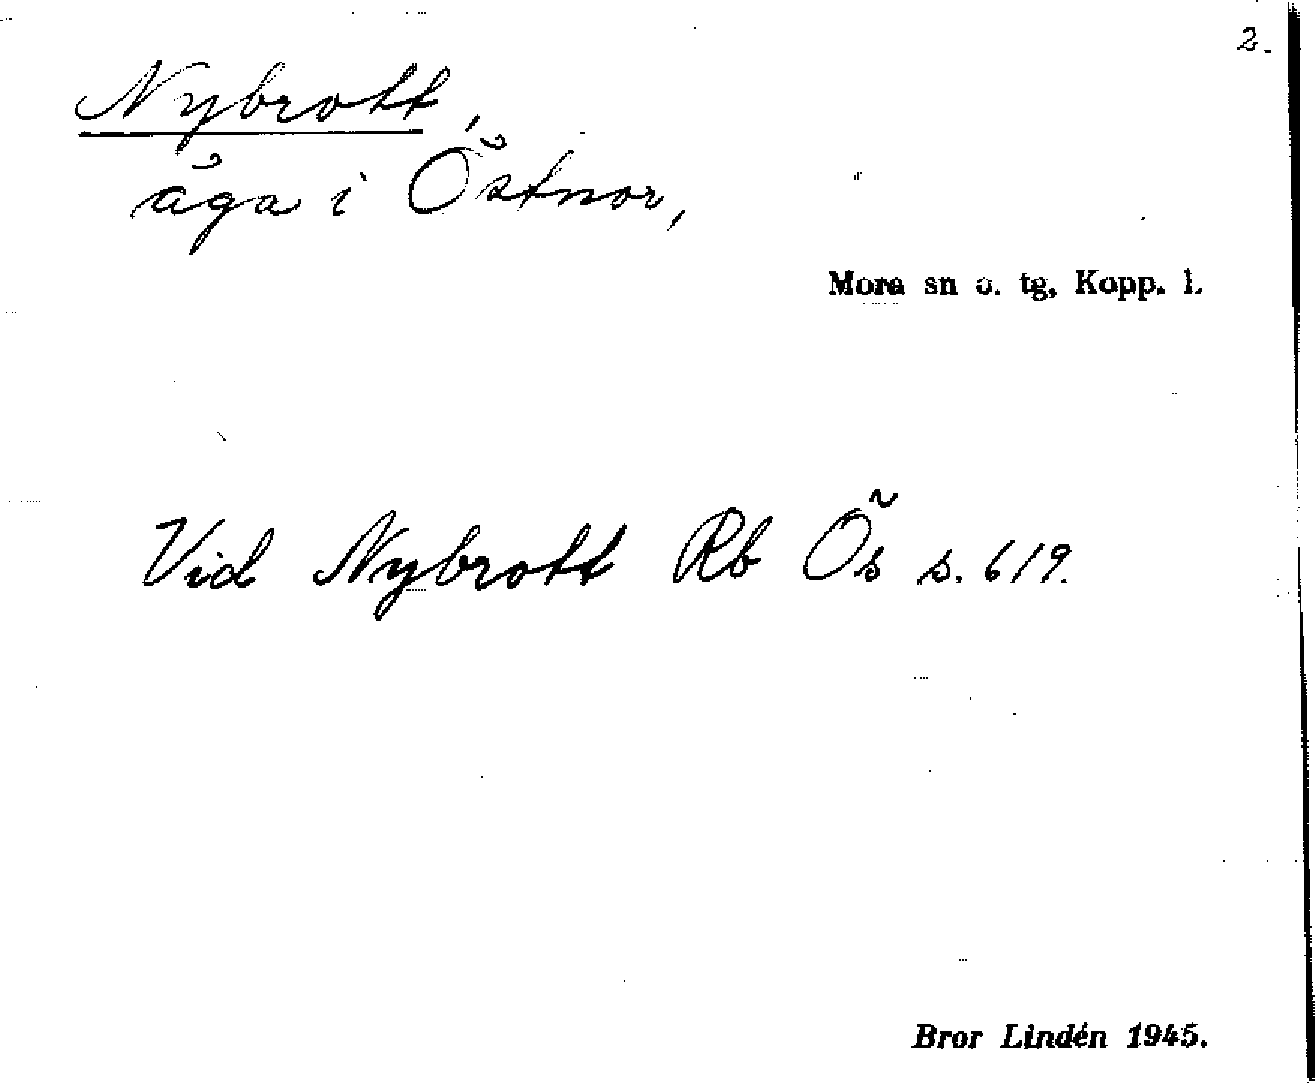 2.
Nybrott,
äga i Östnor,
Mora sn o. tg, Kopp. l.
Vid Nybrott Rb Ös s. 619.
Bror Lindén 1945.